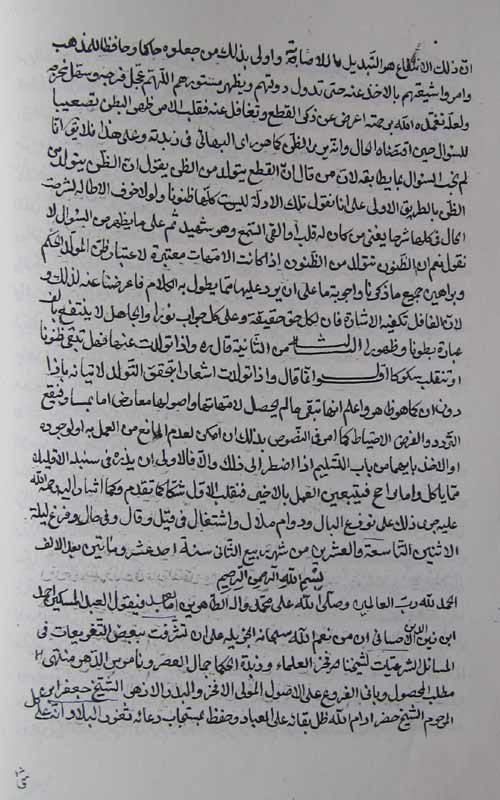 ان ذلك الانتفاع هو التبديل للاصابة واولى بذلك من جعلوه حاكما وحافظا للمذهب
وامروا شيعتهم بالاخذ عنه حتى تدول دولتهم ويظهر مستورهم اللهم عجل فرجهم وسهل مخرجهم
ولعله تغمده الله برحمته اعرض عن ذكر القطع وتغافل عنه فقلب الامر ظهر البطن تصعيبا
للسؤال حين اقتضاه الحال وانه يريد الظن كما هو رأي البهائي في زبدته وعلى هذا فلا يق انا
لم نجب السؤال بما يطابقه لان من قال ان القطع يتولد من الظن يقول ان الظن يتولد من
الظن بالطريق الاولى على انا نقول تلك الادلة ليست كلها ظنونا ولولا خوف الاطالة لشرحت
الحال في كلها شرحا يغني من كان له قلب او القى السمع وهو شهيد ثم على ما يظهر من السؤال لا
نقول نعم ان الظنون تتولد من الظنون اذا كانت الامهات معتبرة لاعتبار ظن المولد الحكم
وبراهين جميع ما ذكرنا واجوبة ما على ان يرد عليها مما يطول به الكلام فاعرضنا عنه لذلك و
لان العاقل تكفيه الاشارة فان لكل حق حقيقة وعلى كل صواب نورا والجاهل لا ينتفع بالف
عبارة بطونا وظهورا الثانية قال ره واذا تولدت عنها فهل تبقى ظنونا
او تنقلب شكوكا اقول قال واذا تولدت اشعارا بتحقق التولد لاتيانه باذا
دون ان كما هو ظاهر واعلم انها تبقى ما لم يحصل لامهاتها واصولها معارض اما مساو فيقع
التردد والفرض الاحتياط كما مر في النصوص بذلك ان امكن لعدم المانع من العمل به او لوجوده
او الاخذ بايهما من باب التسليم اذا اضطر الى ذلك والا فالاولى ان يذره في سنبله الا قليلا
مما ياكل واما راجح فيتعين العمل بالاخير فتقلب الاول شكا كما تقدم وكما اشار اليه رحمه الله
عليه جرى ذلك على توزع البال ودوام ملال واشتغال في قيل وقال وفي حال وفرغ ليلة
الاثنين التاسعة والعشرين من شهر ربيع الثاني سنة احد عشر ومأتين بعد الالف
بسم الله الرحمن الرحيم
الحمد لله رب العالمين وصلى الله على محمد واله الطاهرين اما بعد فيقول العبد المسكين احمد
ابن زين الدين الاحسائي ان من نعم الله سبحانه الجزيلة على ان تشرفت ببعض التفريعات في
المسائل الشرعيات لشيخنا مفخر العلماء وزبدة الحكماء جمال العصر وناموس الدهر منتهى
مطلب المحصول وباني الفروع على الاصول المولى الافخر والبدر الازهر الشيخ جعفر ابن
المرحوم الشيخ خضر ادام الله ظل بقائه على العباد وحفظ بمستجاب دعائه ثغور البلاد انه على كل